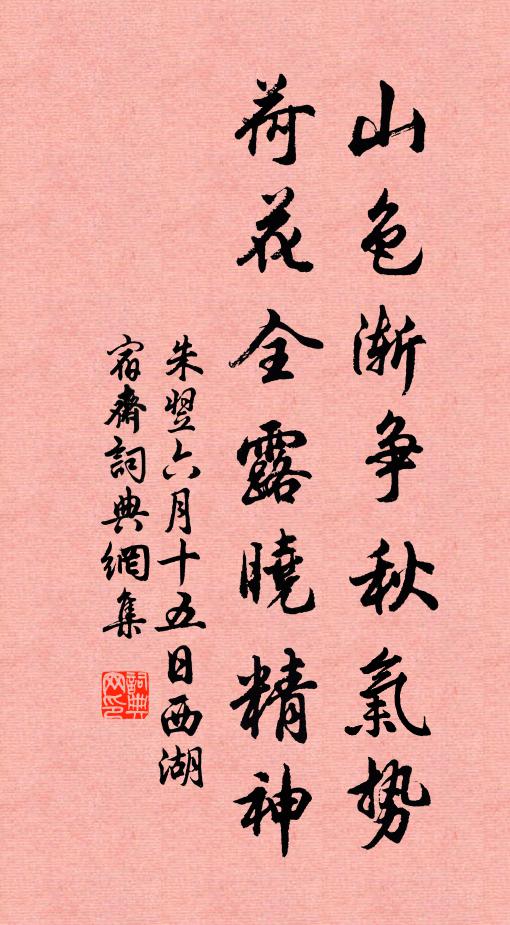 山色漸争秋氣勢
荷花全露曉精神
朱翌六月十五日西湖
宿齋詞典網集
詞典
网印